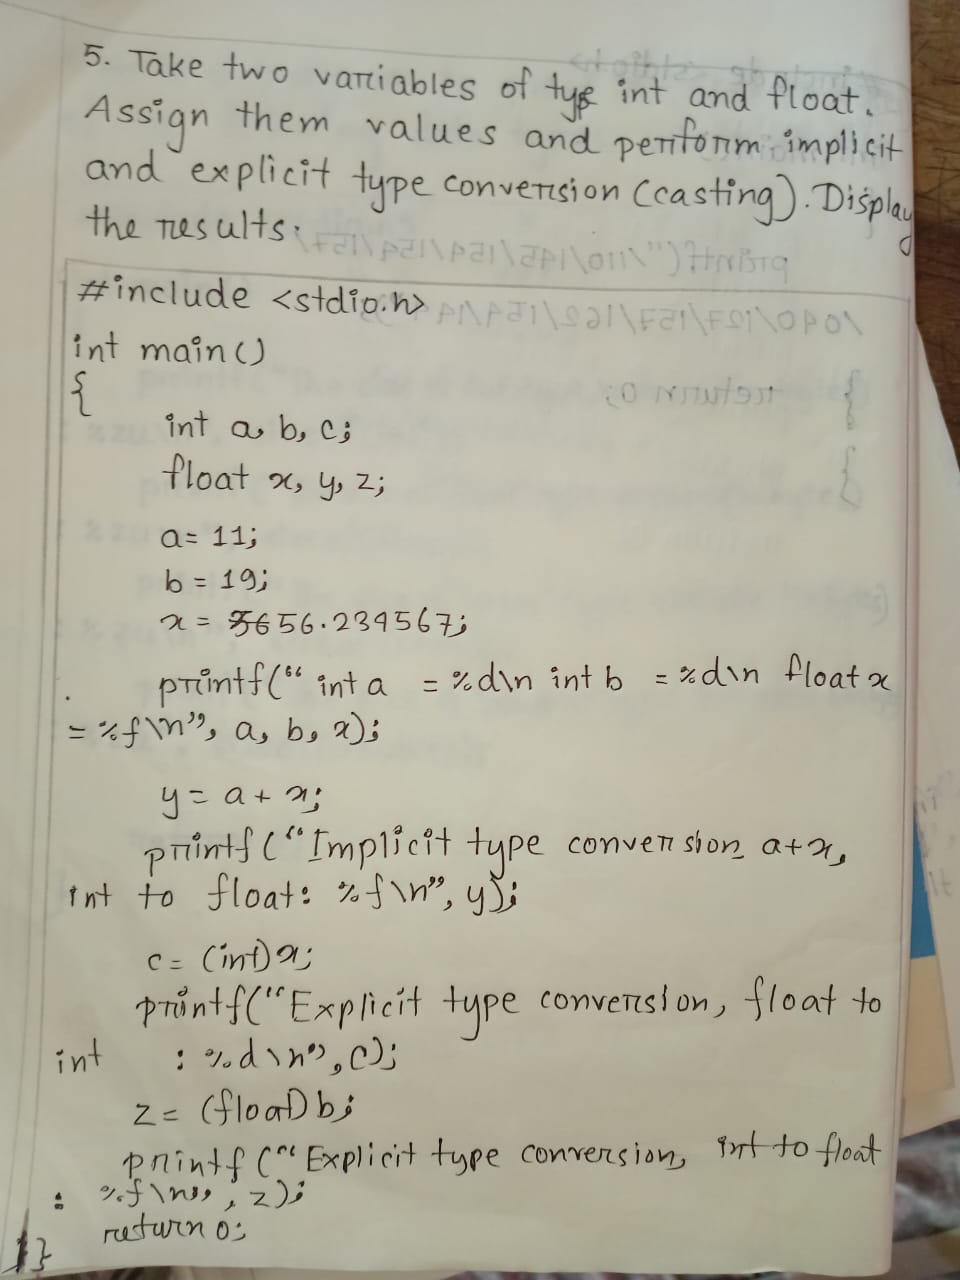 5. Take two variables of type int and float.
Assign them values and perform implicit
and explicit type conversion (casting). Display
the results:
#include <stdio.h>
int main()
{
int a, b, c;
float x, y, z;
a = 11;
b = 19;
x = 5656.234567;
printf("int a = %d\n int b = %d\n float x
= %f\n", a, b, x);
y = a + x;
printf("Implicit type conversion a+x,
int to float: %f\n", y);
c = (int)x;
printf("Explicit type conversion, float to
int : %d\n", c);
z = (float)b;
printf("Explicit type conversion, int to float
: %f\n", z);
return 0;
}